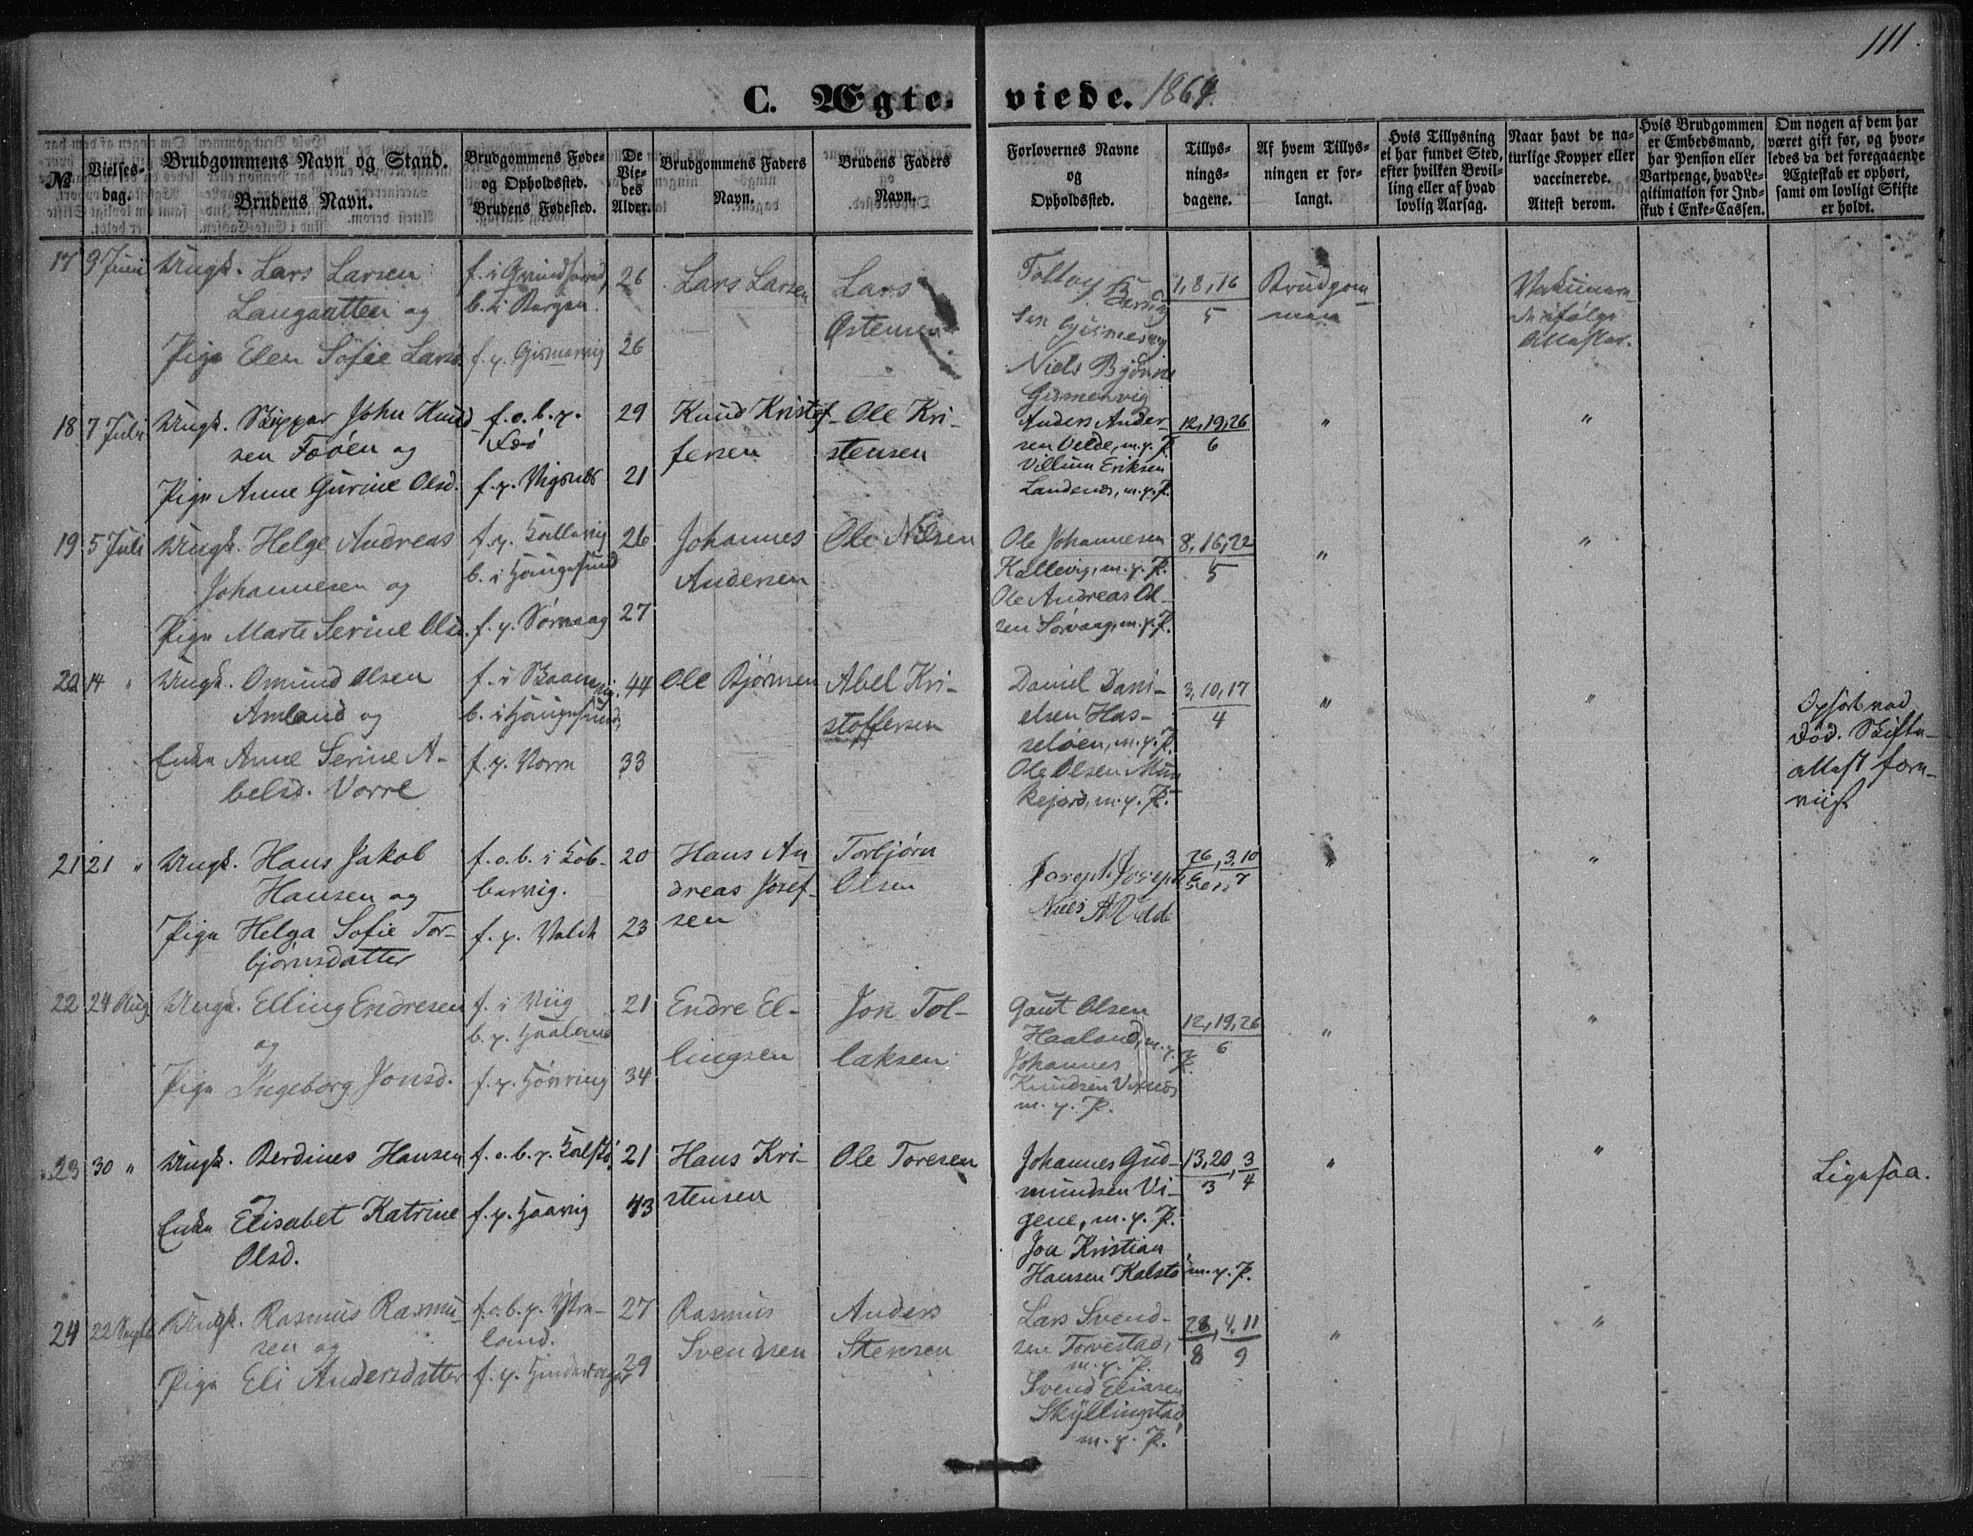 111.
C. Ægte-viede. 1864.
№
Vielses-dag.
Brudgommens Navn og Stand.
Brudens Navn.
Brudgommens Føde-
og Opholdssted.
Brudens Fødested.
De
Vie-
des
Alder.
Brudgommens Faders
Navn.
Brudens Faders
Navn.
Forlovernes Navne
og
Opholdssted.
Tillys-
nings-
dagene.
Af hvem Tillys-
ningen er for-
langt.
Hvis Tillysning
ei har fundet Sted,
efter hvilken Bevil-
ling eller af hvad
lovlig Aarsag.
Naar havt de na-
turlige Kopper eller
vaccinerede.
Attest derom.
Hvis Brudgommen
er Embedsmand,
har Pension eller
Vartpenge, hvad Le-
gitimation for Ind-
skud i Enke-Cassen.
Om nogen af dem har
været gift før, og hvor-
ledes da det foregaaende
Ægteskab er ophørt,
samt om lovligt Skifte
er holdt.
17 9 Juni Ungk. Lars Larsen
Langaatten og
Pige Elen Sofie Larsd.
b. i Bergen.
f. p. Gismarvig
26
26
Lars Larsen
Lars
Østensen
Niels Bjørn
Gismervig
1, 8, 16
5
Brudgom-
men
ifølge
18 7 Juli Ungk. Skipper John Knud-
sen Føøen og
Pige Anne Gurine Olsd.
f. o. b. p.
Føø
f. p. Vigsnes
29
21
Knud Kristof-
fersen
Ole Kri-
stensen
Anders Ander-
sen Velde, m. p. P.
Villum Eriksen
Landenes, m. p. P.
12, 19, 26
6
"
"
19 5 Juli Ungk. Helge Andreas
Johannesen og
Pige Marte Serine Olsd.
f. p. Kallevig
b. i Haugesund
f. p. Sørvaag
26
27
Johannes
Andersen
Ole Nilsen
Ole Johannesen
Kallevig, m. p. P.
Ole Andreas Ol-
sen Sørvaag, m. p. P.
8, 16, 22
5
"
"
20 14 " Ungk. Omund Olsen
Amland og
Enke Anne Serine A-
belsd. Vorre
b. i Haugesund,
f. p. Vorre
44
33
Ole Bjørnsen
Abel Kri-
stoffersen
Daniel Dani-
elsen Has-
seløen, m. p. P.
Ole Olsen Mun-
kejord, m. p. P.
3, 10, 17
4
"
"
Ophørt ved
Død. Skifte-
attest frem-
viist
21 21 " Ungk. Hans Jakob
Hansen og
Pige Helga Sofie Tor-
bjørnsdatter
f. o. b. i Kob-
bervig.
20
23
Hans An-
dreas Josef-
sen
Torbjørn
Olsen
Joseph Joseph-
sen
26, 3, 10
6 7
"
"
22 24 Aug Ungk. Elling Endresen
og
Pige Ingeborg Jonsd.
f. i Viig
b. p. Haaland
f. p. Høvring
21
34
Endre El-
lingsen
Jon Tol-
laksen
Gaut Olsen
Haaland, m. p. P.
Johannes
Knudsen
m. p. P.
12, 19, 26
6
"
"
23 30 " Ungk. Berdines Hansen
og
Enke Elisabet Katrine
Olsd.
f. o. b. p. Kalstø
f. p. Haavig
21
43
Hans Kri-
stensen
Ole Toresen
Johannes Gud-
mundsen Vi-
gene, m. p. P.
Jon Kristian
Hansen Kalstø m. p. P.
13, 20, 3
3 4
"
"
Ligesaa.
24 22 Septb Ungk. Rasmus Rasmu-
sen og
Pige Eli Andersdatter
27
29
Rasmus
Svendsen
Anders
Stensen
Lars Svend-
sen Torvestad,
m. p. P.
Svend Eliasen
Skyllingstad
m. p. P.
28, 4, 11
8 9
"
"